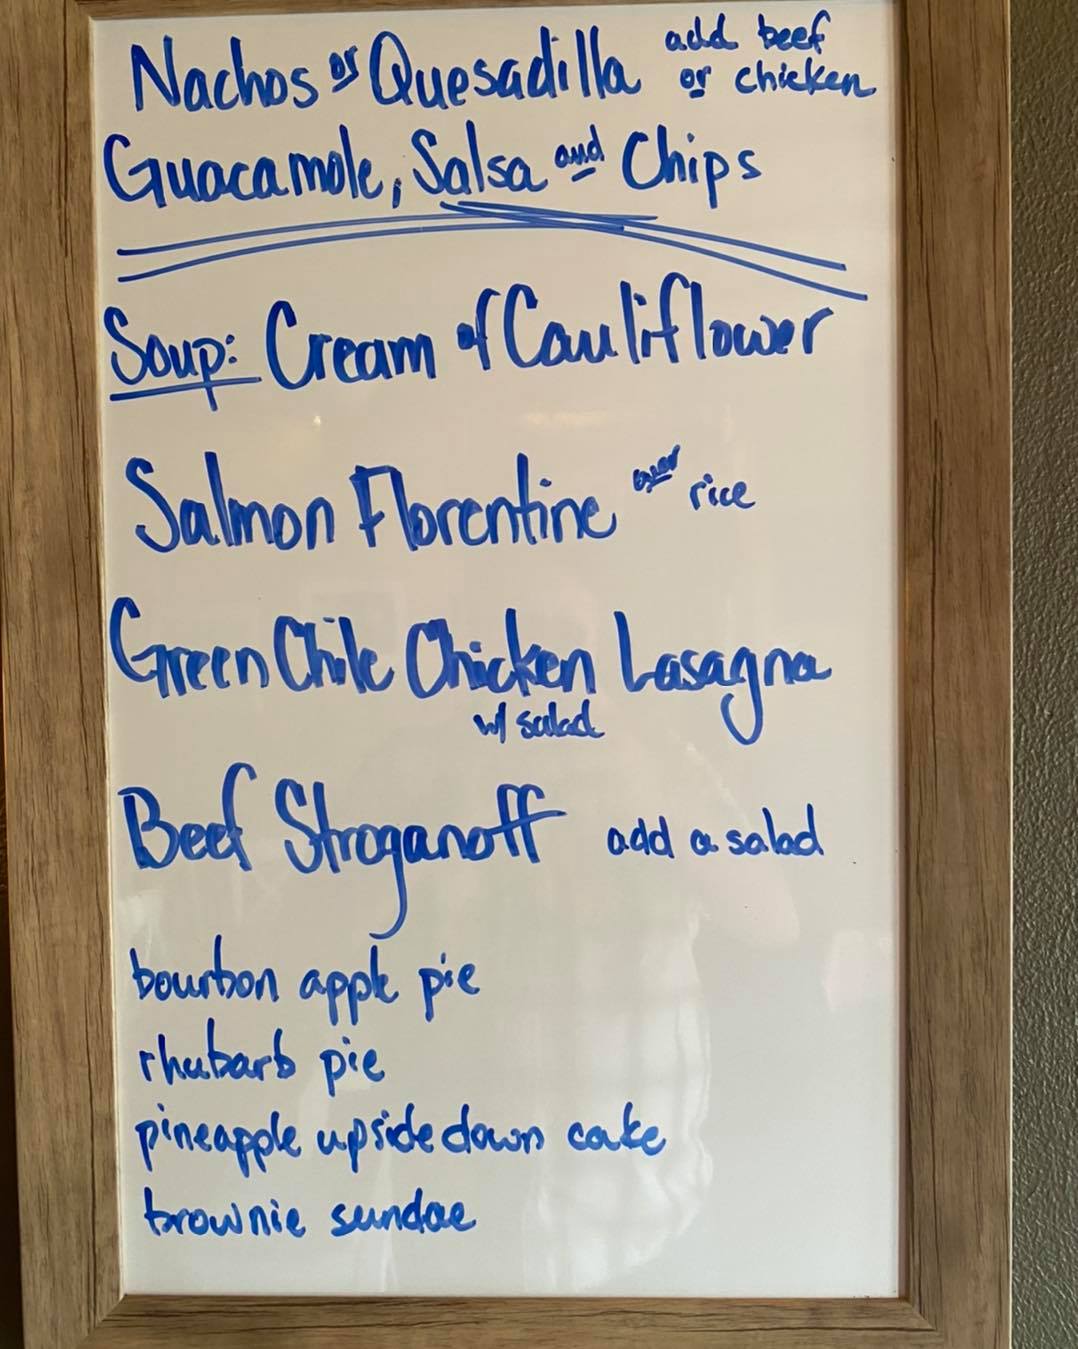 Nachos or Quesadilla add beef or chicken
Guacamole, Salsa and Chips
Soup: Cream of Cauliflower
Salmon Florentine over rice
Green Chile Chicken Lasagna
w/ salad
Beef Stroganoff add a salad
bourbon apple pie
rhubarb pie
pineapple upside down cake
brownie sundae